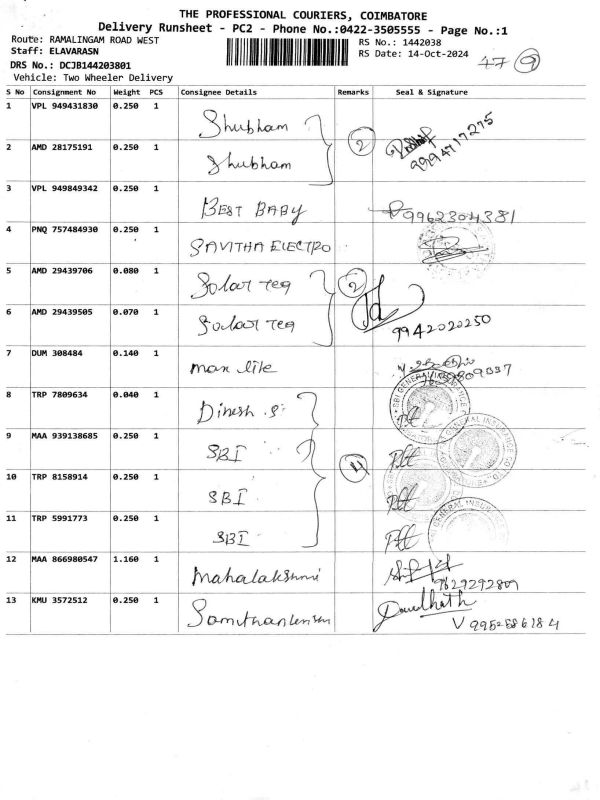 THE PROFESSIONAL COURIERS, COIMBATORE
Delivery Runsheet - PC2 - Phone No.:0422-3505555 - Page No.:1
Route: RAMALINGAM ROAD WEST
Staff: ELAVARASN
DRS No.: DCJB144203801
Vehicle: Two Wheeler Delivery
RS No.: 1442038
RS Date: 14-Oct-2024
47 9
S No Consignment No Weight PCS Consignee Details Remarks Seal & Signature
1 VPL 949431830 0.250 1 Shubham
2 AMD 28175191 0.250 1 Shubham 2 9994717275
3 VPL 949849342 0.250 1 BEST BABY 9962304381
4 PNQ 757484930 0.250 1 SAVITHA ELECTRO
5 AMD 29439706 0.080 1 Solar teq 2
6 AMD 29439505 0.070 1 Solar teq 9942020250
7 DUM 308484 0.140 1 max life
8 TRP 7809634 0.040 1 Dinesh .S. SBI GENERAL INSURANCE
9 MAA 939138685 0.250 1 SBI 4 GENERAL INSURANCE CO
10 TRP 8158914 0.250 1 SBI
11 TRP 5991773 0.250 1 SBI GENERAL INSURANCE
12 MAA 866980547 1.160 1 Mahalakshmi
13 KMU 3572512 0.250 1